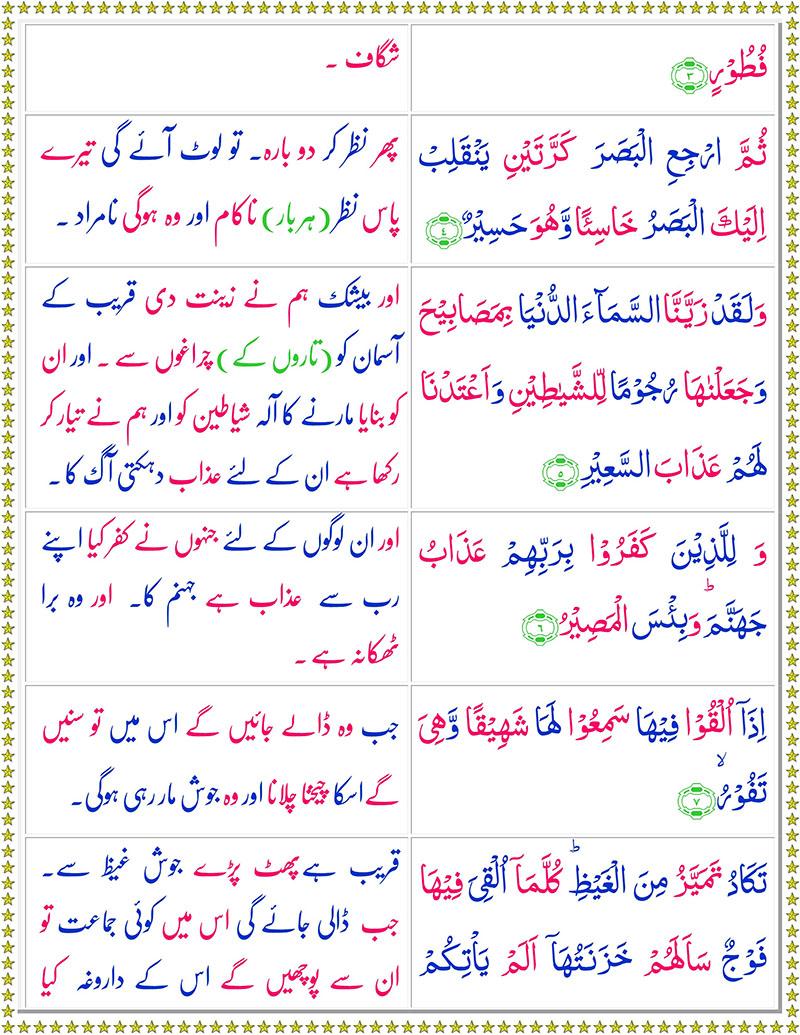 فُطُوْرٍ ﴿۳﴾
شگاف ۔
ثُمَّ ارْجِعِ الْبَصَرَ كَرَّتَيْنِ يَنْقَلِبْ
اِلَيْكَ الْبَصَرُ خَاسِئًا وَّهُوَ حَسِيْرٌ ﴿۴﴾
پھر نظر کر دو بارہ۔ تو لوٹ آئے گی تیرے
پاس نظر (ہر بار) ناکام اور وہ ہوگی نامراد ۔
وَلَقَدْ زَيَّنَّا السَّمَآءَ الدُّنْيَا بِمَصَابِيْحَ
وَجَعَلْنٰهَا رُجُوْمًا لِّلشَّيٰطِيْنِ وَاَعْتَدْنَا
لَهُمْ عَذَابَ السَّعِيْرِ ﴿۵﴾
اور بیشک ہم نے زینت دی قریب کے
آسمان کو (تاروں کے) چراغوں سے ۔ اور ان
کو بنایا مارنے کا آلہ شیاطین کو اور ہم نے تیار کر
رکھا ہے ان کے لئے عذاب دہکتی آگ کا ۔
وَ لِلَّذِيْنَ كَفَرُوْا بِرَبِّهِمْ عَذَابُ
جَهَنَّمَ ؕ وَبِئْسَ الْمَصِيْرُ ﴿۶﴾
اور ان لوگوں کے لئے جنہوں نے کفر کیا اپنے
رب سے عذاب ہے جہنم کا۔ اور وہ برا
ٹھکانہ ہے ۔
اِذَآ اُلْقُوْا فِيْهَا سَمِعُوْا لَهَا شَهِيْقًا وَّهِىَ
تَفُوْرُ ۙ ﴿۷﴾
جب وہ ڈالے جائیں گے اس میں تو سنیں
گے اسکا چیخنا چلانا اور وہ جوش مار رہی ہوگی۔
تَكَادُ تَمَيَّزُ مِنَ الْغَيْظِ ؕ كُلَّمَآ اُلْقِىَ فِيْهَا
فَوْجٌ سَاَلَهُمْ خَزَنَتُهَآ اَلَمْ يَاْتِكُمْ
قریب ہے پھٹ پڑے جوش غیظ سے۔
جب ڈالی جائے گی اس میں کوئی جماعت تو
ان سے پوچھیں گے اس کے داروغہ کیا